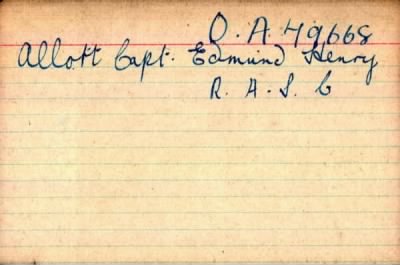 O. A. 79668
Allott Capt. Edmund Henry
R. A. S. C